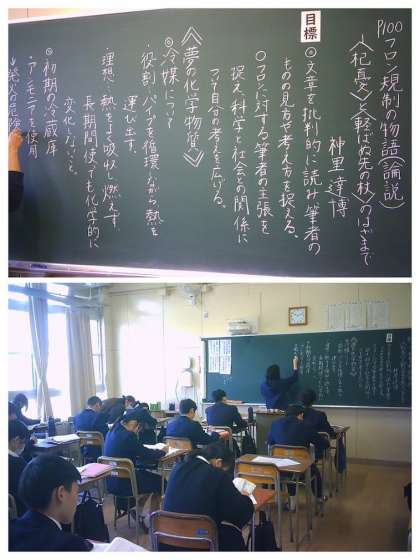 P100
フロン規制の物語(論説)
〈杞憂〉と〈転ばぬ先の杖〉のはざまで
神里達博
目標
◎文章を批判的に読み、筆者の
ものの見方や考え方を捉える。
○フロンに対する筆者の主張を
捉え、科学と社会との関係に
ついて自分の考えを広げる。
《夢の化学物質》
◎冷媒について
・役割…パイプを循環しながら熱を
運び出す。
・理想…熱をよく吸収し、燃えず、
長期間使っても化学的に
変化しないこと。
◎初期の冷蔵庫
・アンモニアを使用
発火の危険